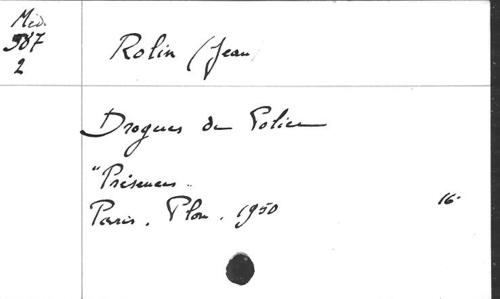 Méd.
587
2
Rolin (Jean)
Drogues de Police
"Présences"
Paris. Plon. 1950
16°